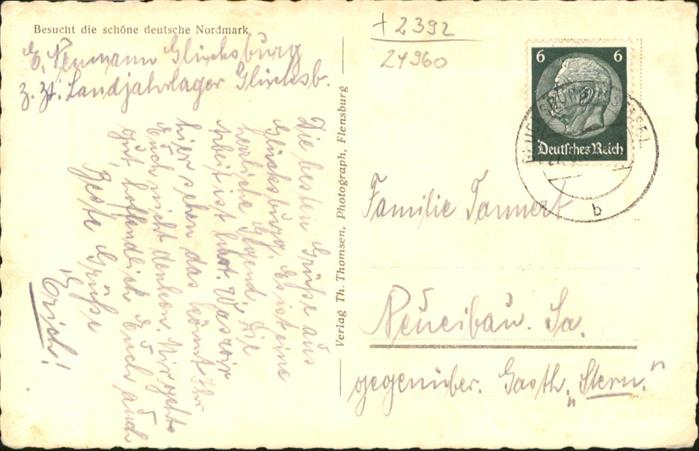 Besucht die schöne deutsche Nordmark
E. Neumann Glücksburg
z. Zt. Landjahrlager Glücksb.
Die besten Grüße aus
Glücksburg. Es ist eine
herrliche Gegend. Die
Arbeit ist hart. Was wir
hier sehen das könnt Ihr
Euch nicht denken. Mir geht's
gut, hoffendlich Euch auch
Beste Grüße
Erich!
Verlag Th. Thomsen, Photograph, Flensburg
+2392
24960
6 6
Deutsches Reich
b
Familie Tannert
Neueibau. Sa.
gegenüber. Gasth. „Stern."